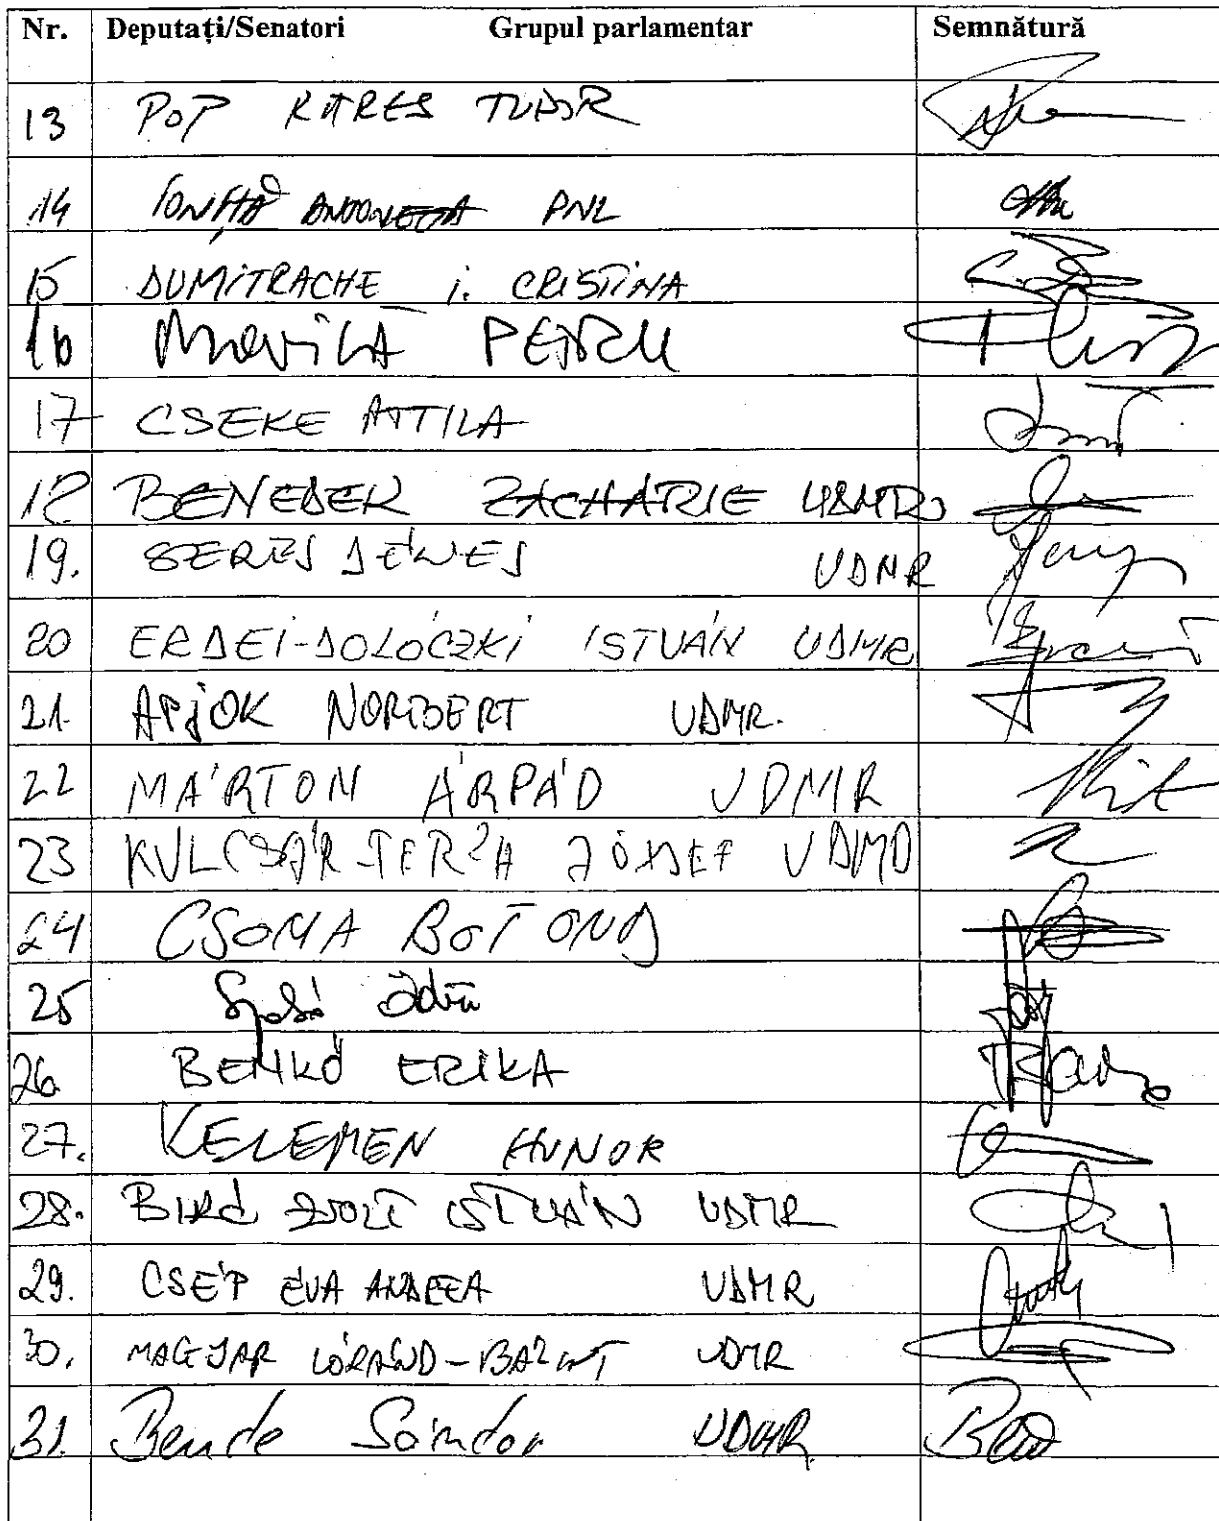 Nr. Deputați/Senatori Grupul parlamentar Semnătură
13 POP RAREȘ TUDOR
14 IONIȚĂ ANTONETA PNL
15 DUMITRACHE i. CRISTINA
16 MOVILĂ PETRU
17 CSEKE ATTILA
18 BENEDEK ZACHARIE UDMR
19. SERES DÉNES UDMR
20 ERDEI-DOLÓCZKI ISTVÁN UDMR
21. APJOK NORBERT UDMR.
22 MÁRTON ÁRPÁD UDMR
23 KULCSÁR-TERZA JÓZSEF UDMR
24 CSOMA BOTOND
25 Szabó Ödön
26. BENKŐ ERIKA
27. KELEMEN HUNOR
28. BIRÓ ZSOLT ISTVÁN UDMR
29. CSÉP ÉVA ANDREEA UDMR
30. MAGYAR LÓRÁND-BÁLINT UDMR
31. Bende Sándor UDMR